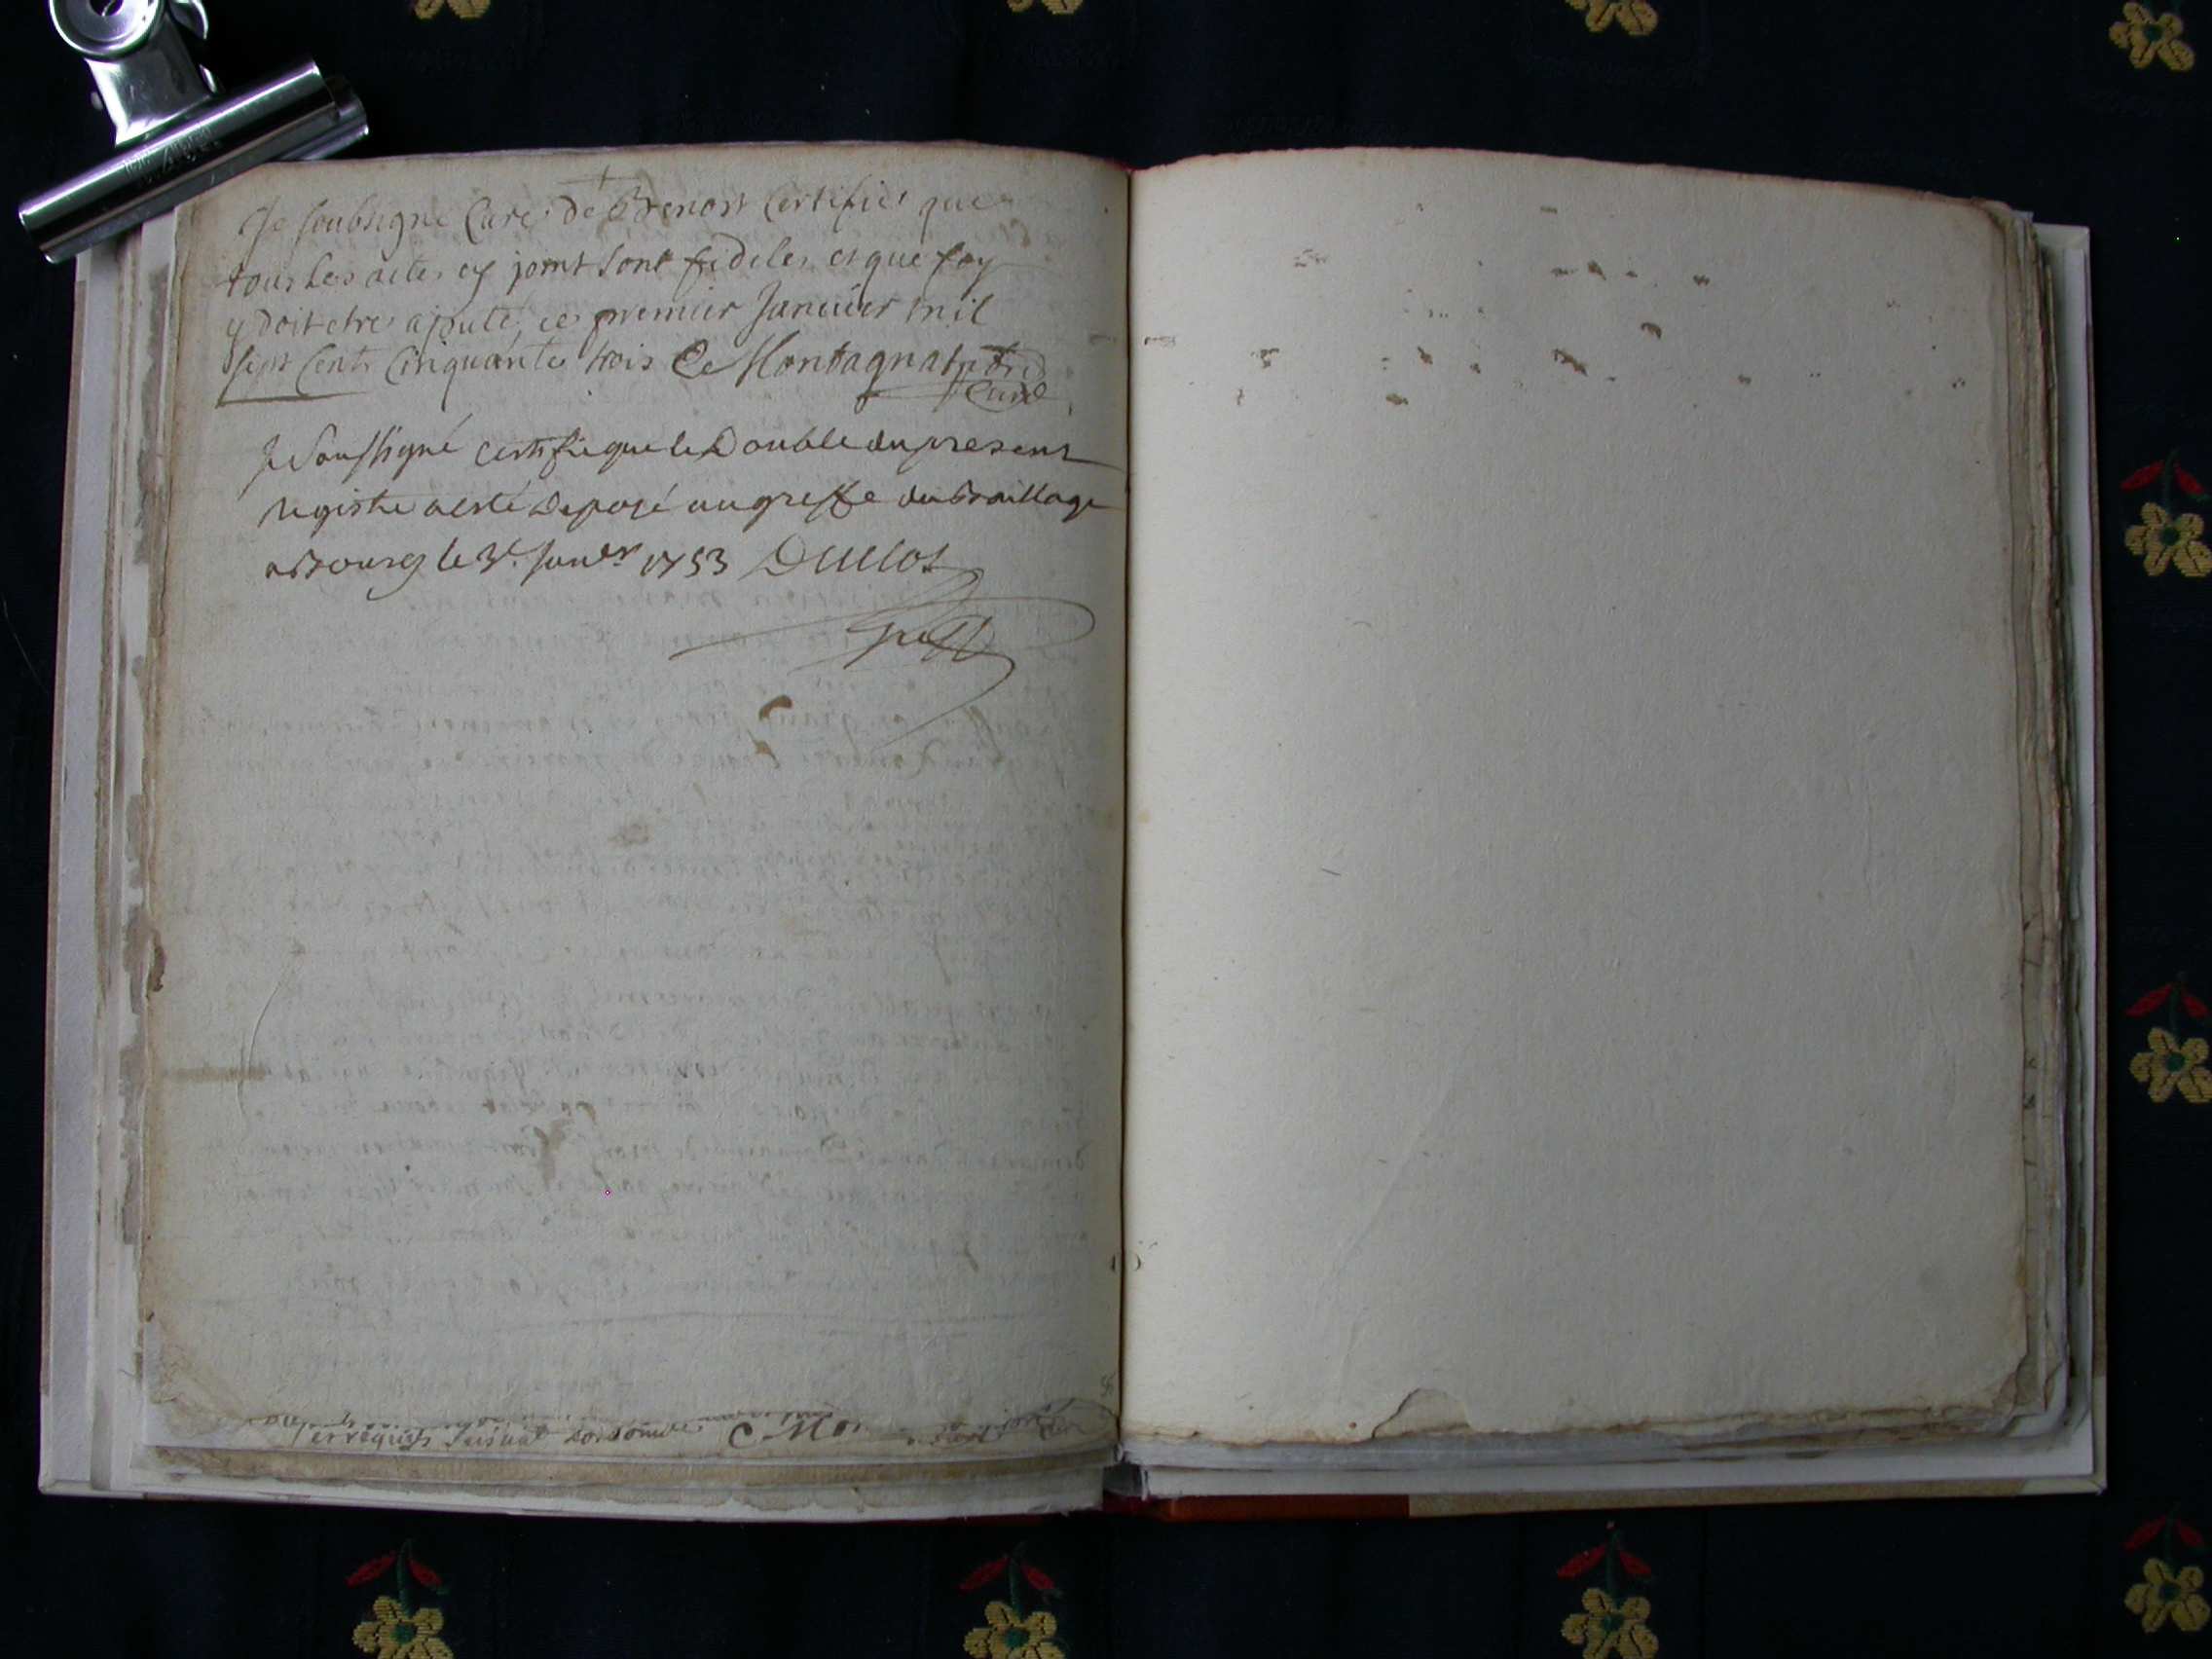 Je soubsigne Curé de Brenost Certifie que
tous les actes cy joint sont fideles et que foy
y doit etre ajouté, ce premier Janvier mil
sept Cents Cinquante trois De Montagnat ptre
Curé
Je Soussigné Certifie que le Double du present
Registre a esté Deposé au greffe du Bailliage
a Bourg le 3e. Janer 1753 Duclos
greff